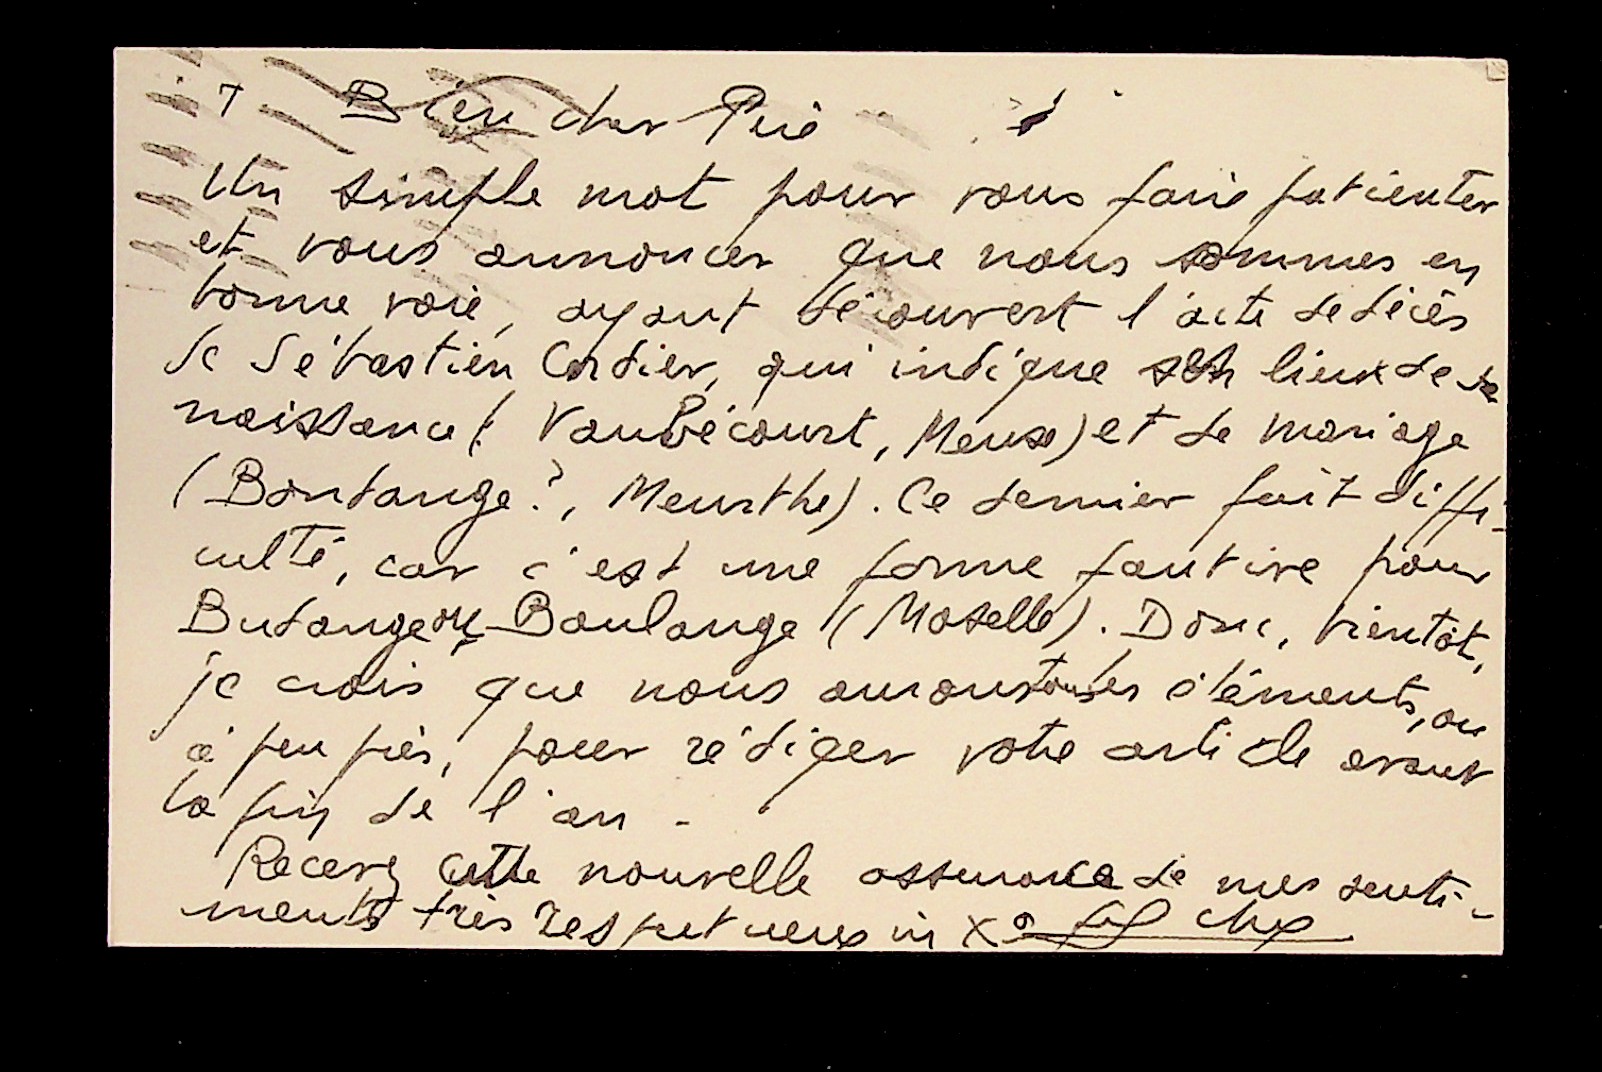 † Bien cher Père
Un simple mot pour vous faire patienter
et vous annoncer que nous sommes en
bonne voie, ayant découvert l'acte de décès
de Sébastien Cordier, qui indique son lieux de sa
naissance (Vaubécourt, Meuse) et de mariage
(Bontange?, Meurthe). Ce dernier fait diffi-
culté, car c'est une forme fautive pour
Budange ou Boulange (Moselle). Donc, bientôt,
je crois que nous aurons tous les éléments, ou
à peu près, pour rédiger votre article avant
la fin de l'an -
Recevez cette nouvelle assurance de mes senti-
ments très respectueux in Xº